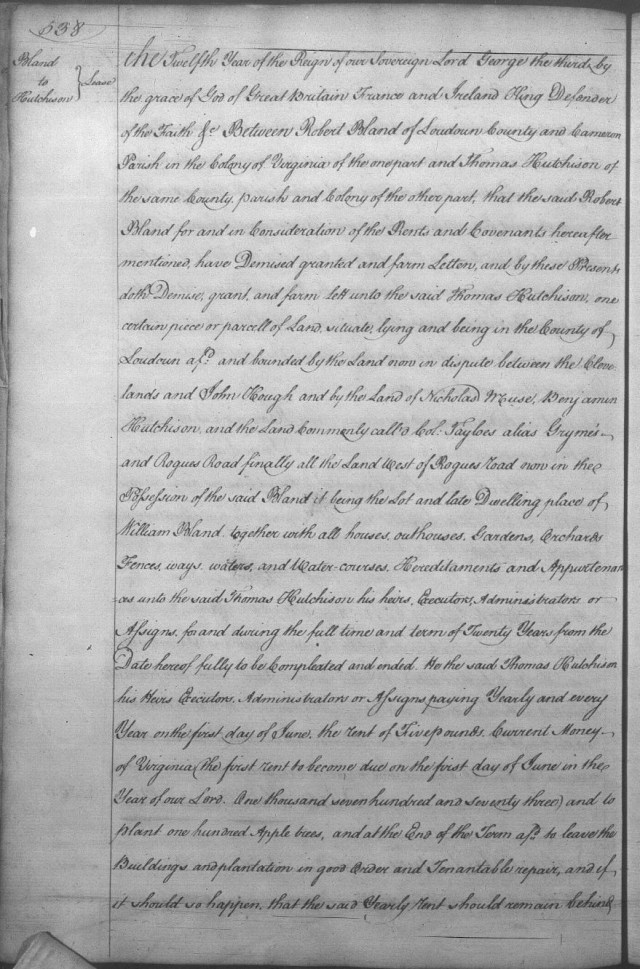 538
Bland
to
Hutchison } Lease
the Twelfth Year of the Reign of our Sovereign Lord George the third by
the grace of God of Great Britain France and Ireland King Defender
of the Faith &c Between Robert Bland of Loudoun County and Cameron
Parish in the Colony of Virginia of the one part and Thomas Hutchison of
the same County, parish and Colony of the other part, that the said Robert
Bland for and in Consideration of the Rents and Covenants hereafter
mentioned, have Demised granted and farm Letten, and by these Presents
doth Demise, grant, and farm lett unto the said Thomas Hutchison, one
certain piece or parcell of Land, situate, lying and being in the County of
Loudoun afsd. and bounded by the Land now in dispute between the Cleve-
lands and John Hough and by the Land of Nicholas Muse, Benjamin
Hutchison, and the Land Commonly call'd Col. Tayloes alias Gryme's
and Rogues Road finally all the Land West of Rogues road now in the
Possession of the said Bland it being the Lot and late Dwelling place of
William Bland. together with all houses, outhouses, Gardens, Orchards
Fences, ways, waters, and Water-courses, Hereditaments and Appurtenan
=ces unto the said Thomas Hutchison his heirs, Executors, Administrators or
Assigns, for and during the full time and term of Twenty Years from the
Date hereof fully to be Compleated and ended. He the said Thomas Hutchison
his Heirs Executors, Administrators or Assigns paying Yearly and every
Year on the first day of June, the rent of Five pounds, Current Money
of Virginia (the first rent to become due on the first day of June in the
Year of our Lord. One thousand seven hundred and seventy three) and to
plant one hundred Apple trees, and at the End of the Term afsd. to leave the
Buildings and plantation in good Order and Tenantable repair, and if
it should so happen, that the said Yearly rent should remain behind